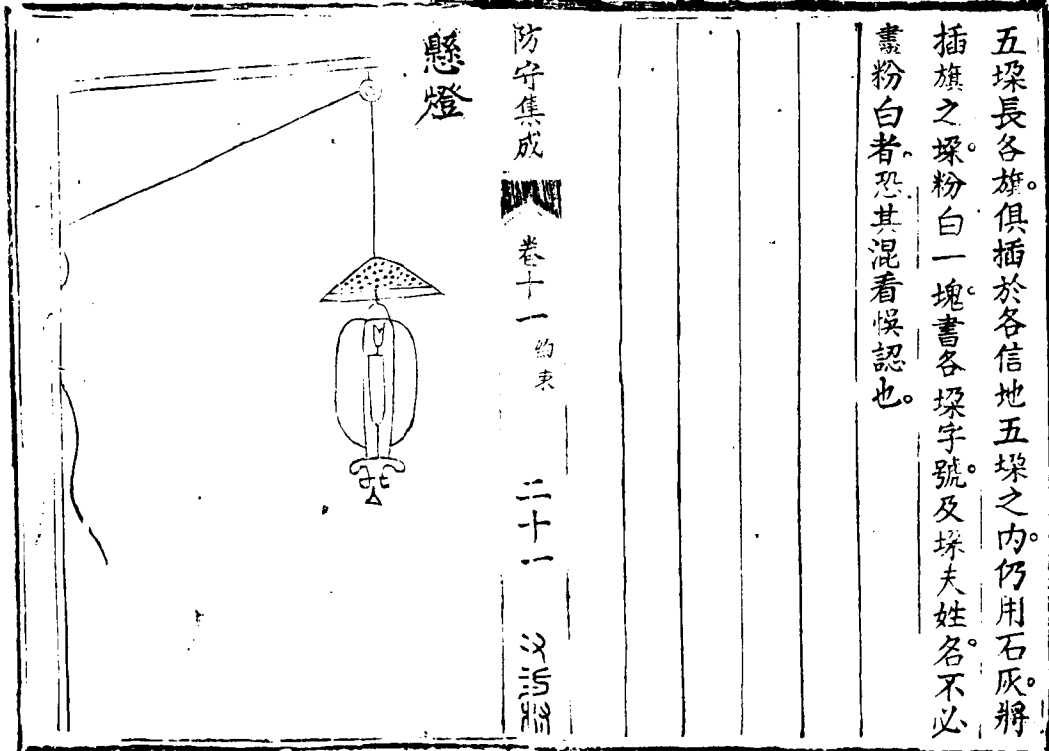 五垜長各旗俱插於各信地五垜之内仍用石灰將
插旗之垜粉白一塊書各垜字號及垜夫姓名不必
書粉白者恐其混看悞認也
防守集成
卷十一
約束
二十一
懸燈